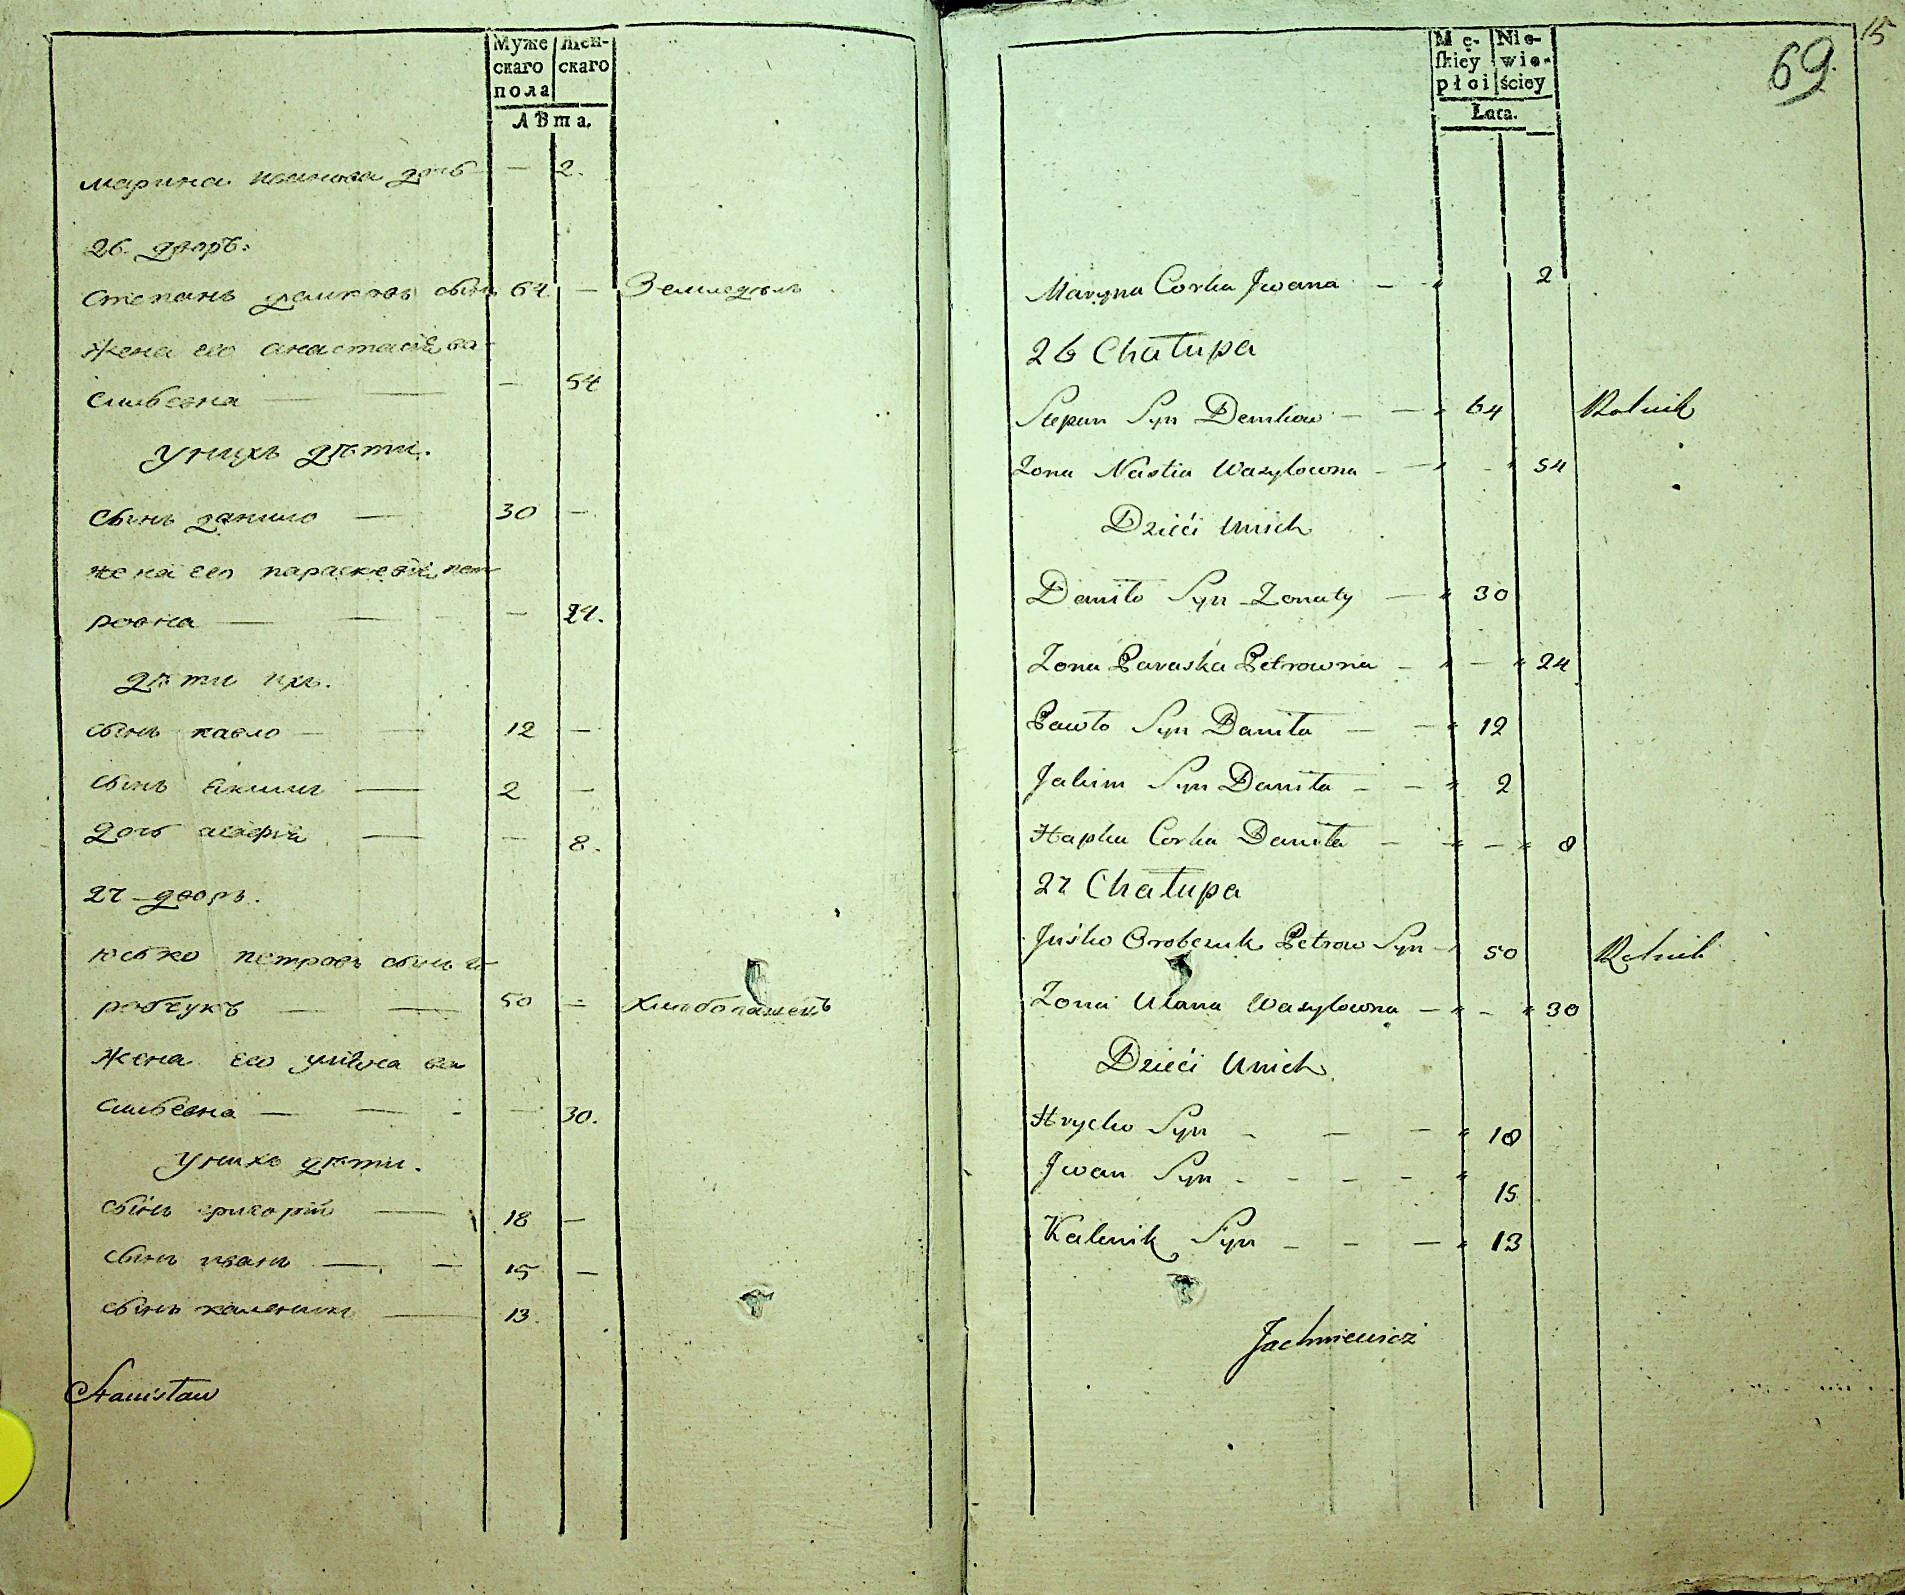 Муже Жен-
скаго скаго
пола
Лѣта.
марина иванова дочь — 2.
26 дворъ.
степанъ демковъ сынъ 64 — Земледѣлъ
жена его анастасія ва-
сильевна — — — 54
у нихъ дѣти.
сынъ данило — 30 —
жена его параскевія пет
ровна — — — 24.
дѣти ихъ.
сынъ павло — — 12 —
сынъ екимъ — 2 —
дочь агафія — — 8.
27 дворъ.
юсько петровъ сынъ о
робчукъ — — 50 — хлѣбопашецъ
жена его уліяна ва
сильевна — — — 30.
у нихъ дѣти.
сынъ григорій — 18 —
сынъ иванъ — — 15 —
сынъ каленикъ — 13.
Stanisław
15
69.
Mę- Nie-
skiey wie-
płci ściey
Łata.
Maryna Corka Jwana — 2
26 Chałupa
Stepan Syn Demkow — — 64 Rolnik
Zona Nastia Wasylowna — — - 54
Dzieći Unich
Daniło Syn Zonaty — 30
Zona Paraska Petrowna — — 24
Pawło Syn Daniła — — 12
Jakim Syn Daniła — — 2
Hapka Corka Daniła — — 8
27 Chałupa
Juśko Orobczuk Petrow Syn — 50 Rolnik
Zona Ulana Wasylowna — - 30
Dzieći Unich
Hrycko Syn - — — 18
Jwan Syn - - - - 15
Kalenik Syn — - — 13
Jachniewicz